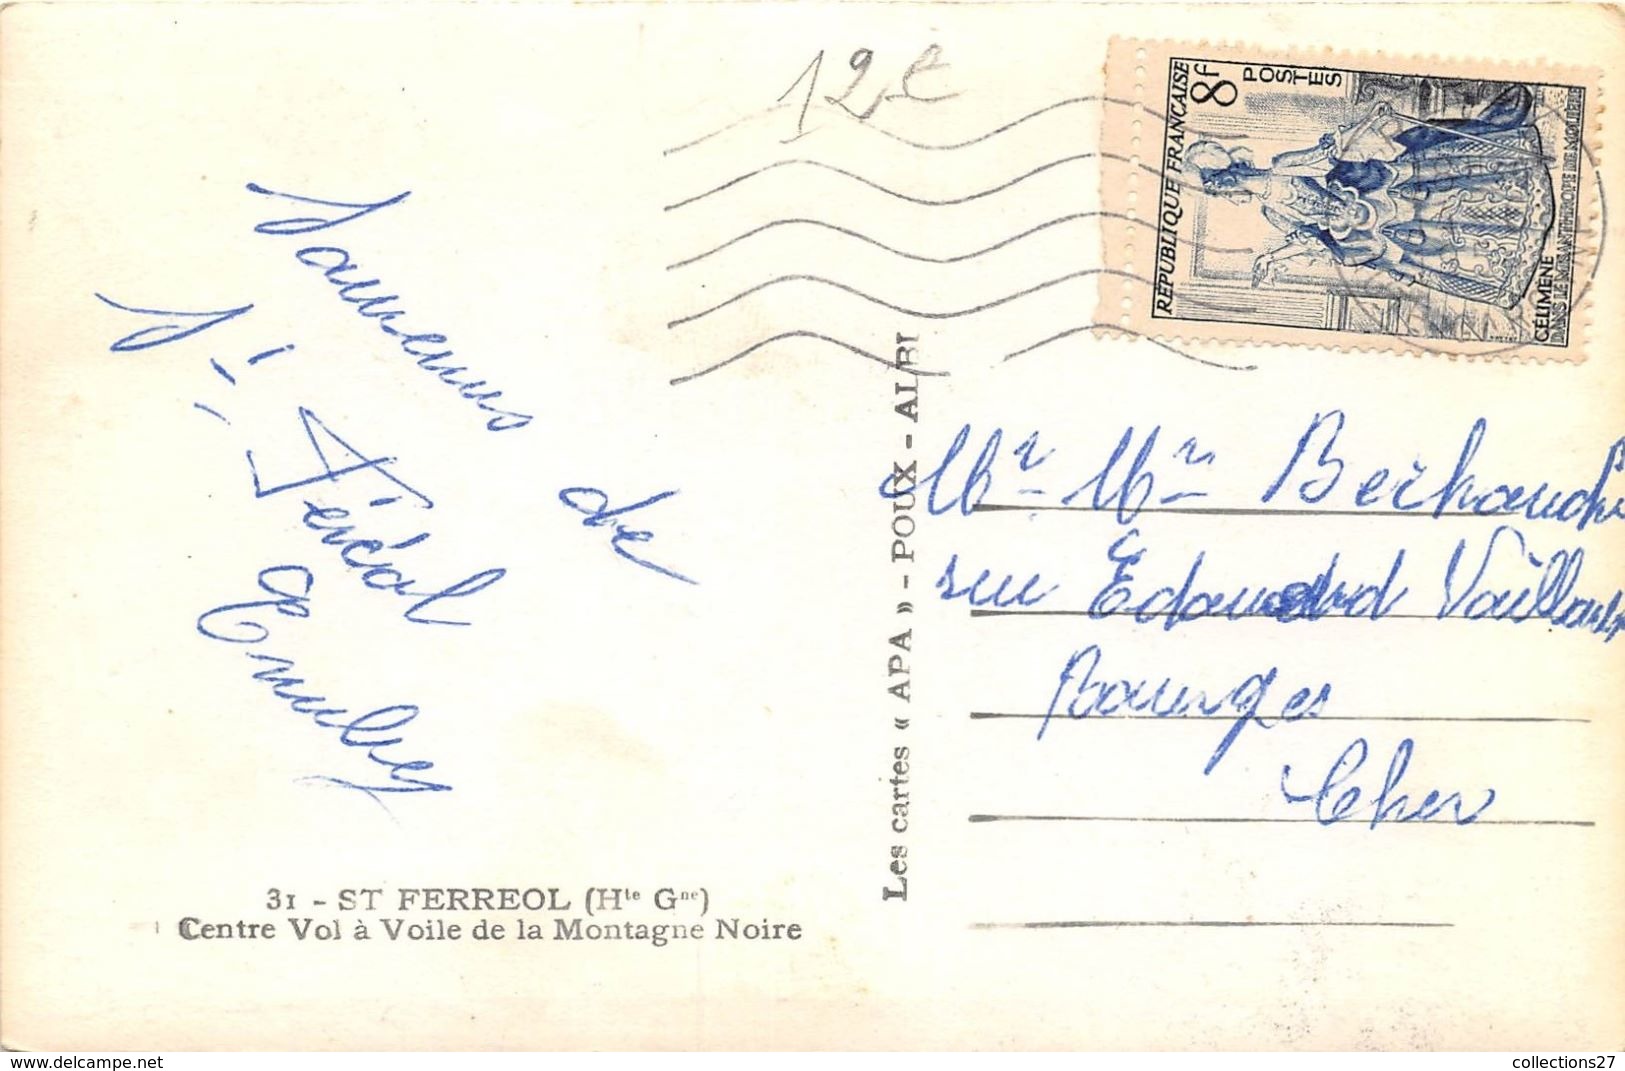 12 €
RÉPUBLIQUE FRANÇAISE
8f
POSTES
CÉLIMÈNE
DANS LE MISANTHROPE DE MOLIÈRE
Souvenirs de
St Féréol
Les cartes « APA » - POUX - ALBI
Mr Mme
rue Edouard Vaillant
Bourges
Cher
31 - ST FERREOL (Hte Gne)
Centre Vol à Voile de la Montagne Noire
www.delcampe.net
collections27